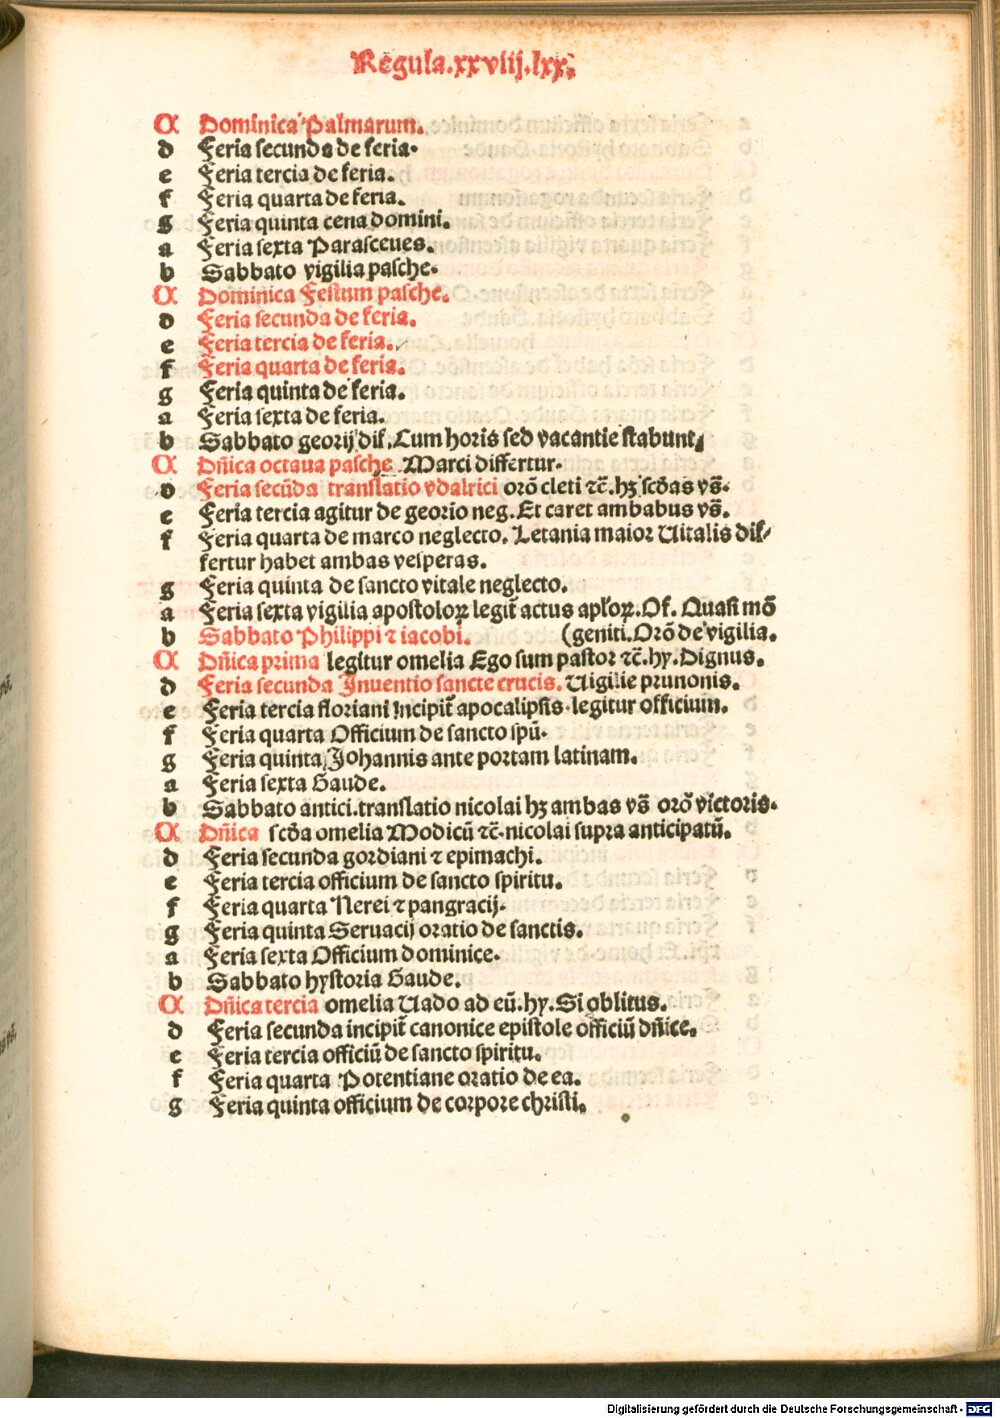 Regula.xxviij.lxx.
C Dominica Palmarum.
d Feria secunda de feria.
e Feria tercia de feria.
f Feria quarta de feria.
g Feria quinta cena domini.
a Feria sexta Parasceues.
b Sabbato vigilia pasche.
C Dominica Festum pasche.
d Feria secunda de feria.
e Feria tercia de feria.
f Feria quarta de feria.
g Feria quinta de feria.
a Feria sexta de feria.
b Sabbato georij dif. Cum horis sed vacantie stabunt,
C Dn̄ica octaua pasche Marci differtur.
d Feria secūda translatio vdalrici orō cleti ⁊c̄. hꝫ scd̄as vs̄.
e Feria tercia agitur de georio neg. Et caret ambabus vs̄.
f Feria quarta de marco neglecto. Letania maior Uitalis dif⸗
fertur habet ambas vesperas.
g Feria quinta de sancto vitale neglecto.
a Feria sexta vigilia apostoloꝝ legit̄ actus apl'oꝝ. Of. Quasi mō
b Sabbato Philippi ⁊ iacobi. (geniti. Orō de vigilia.
C Dn̄ica prima legitur omelia Ego sum pastor ⁊c̄. hy. Dignus.
d Feria secunda Inuentio sancte crucis. Uigilie prunonis.
e Feria tercia floriani Incipit̄ apocalipsis. legitur officium.
f Feria quarta Officium de sancto spū.
g Feria quinta Johannis ante portam latinam.
a Feria sexta Gaude.
b Sabbato antici. translatio nicolai hꝫ ambas vs̄ orō victoris.
C Dn̄ica scd̄a omelia Modicū ⁊c̄. nicolai supra anticipatū.
d Feria secunda gordiani ⁊ epimachi.
e Feria tercia officium de sancto spiritu.
f Feria quarta Nerei ⁊ pangracij.
g Feria quinta Seruacij oratio de sanctis.
a Feria sexta Officium dominice.
b Sabbato hystoria Gaude.
C Dn̄ica tercia omelia Uado ad eū. hy. Si oblitus.
d Feria secunda incipit̄ canonice epistole officiū dn̄ice.
e Feria tercia officiū de sancto spiritu.
f Feria quarta Potentiane oratio de ea.
g Feria quinta officium de corpore christi.
Digitalisierung gefördert durch die Deutsche Forschungsgemeinschaft - DFG